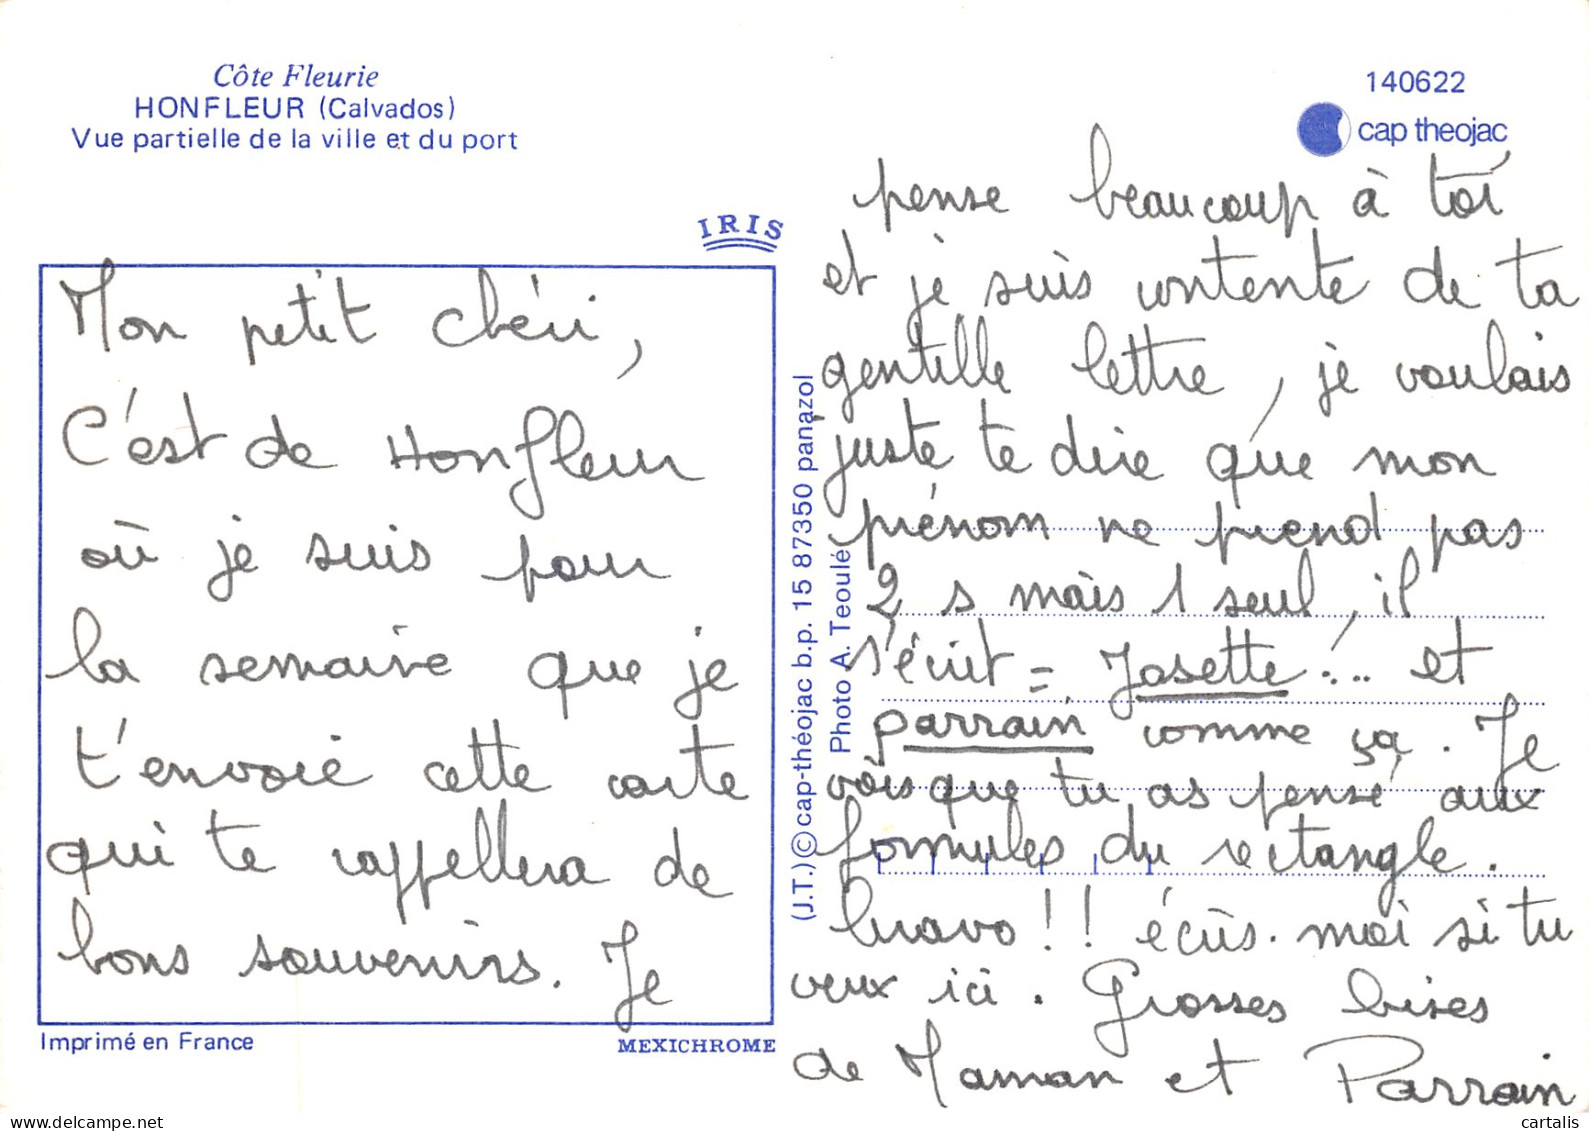 Côte Fleurie
HONFLEUR (Calvados)
Vue partielle de la ville et du port
IRIS
Mon petit chéri,
C'est de Honfleur
où je suis pour
la semaine que je
t'envoie cette carte
qui te rappellera de
bons souvenirs. Je
Imprimé en France
MEXICHROME
(J.T.) © cap-théojac b.p. 15 87350 panazol
Photo A. Teoulé
140622
cap theojac
pense beaucoup à toi
et je suis contente de ta
gentille lettre, je voulais
juste te dire que mon
prénom ne prend pas
2 s mais 1 seul, il
s'écrit = Josette !... et
parrain comme ça. Je
vois que tu as pensé aux
formules du rectangle.
bravo !! écris. moi si tu
veux ici. Grosses bises
de Maman et Parrain
© delcampe.net
cartalis